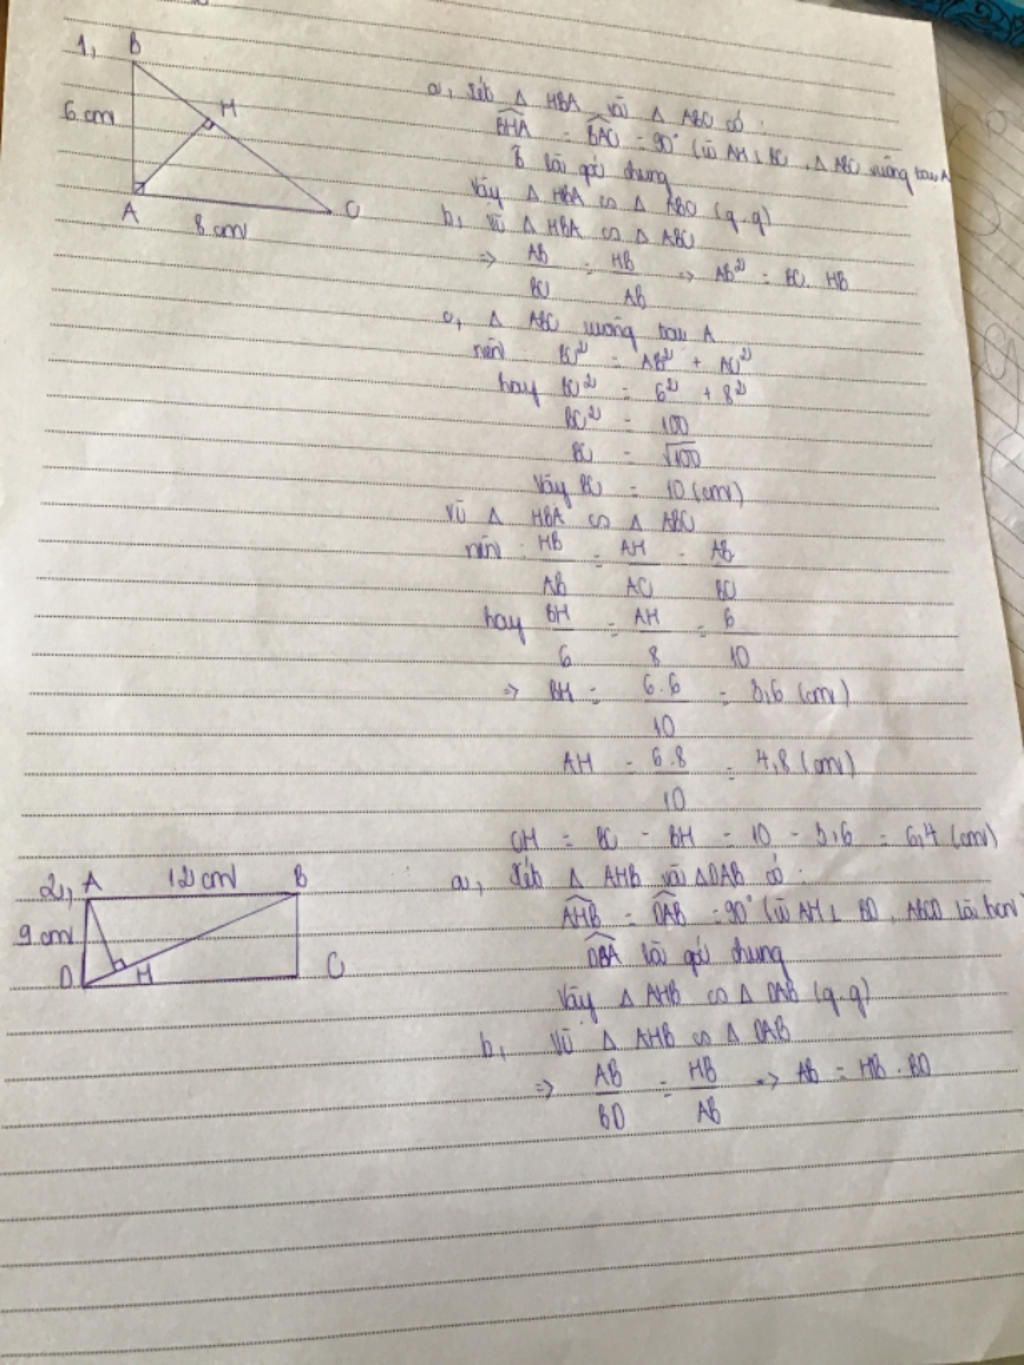 1,
B
6 cm
H
A
8 cm
C
a, Xét Δ HBA và Δ ABC có :
BHA = BAC = 90° (vì AH ⊥ BC , Δ ABC vuông tại A
B là góc chung
Vậy Δ HBA ∽ Δ ABC (g.g)
b, Vì Δ HBA ∽ Δ ABC
=> AB/BC = HB/AB => AB² = BC . HB
c, Δ ABC vuông tại A
nên BC² = AB² + AC²
hay BC² = 6² + 8²
BC² = 100
BC = √100
Vậy BC = 10 (cm)
Vì Δ HBA ∽ Δ ABC
nên : HB/AB = AH/AC = AB/BC
hay BH/6 = AH/8 = 6/10
=> BH = 6.6/10 = 3,6 (cm)
AH = 6.8/10 = 4,8 (cm)
CH = BC - BH = 10 - 3,6 = 6,4 (cm)
2,
A
12 cm
B
9 cm
D
H
C
a, Xét Δ AHB và ΔDAB có :
AHB = DAB = 90° (vì AH ⊥ BD , ABCD là hcn)
DBA là góc chung
Vậy Δ AHB ∽ Δ DAB (g.g)
b, Vì Δ AHB ∽ Δ DAB
=> AB/BD = HB/AB => AB = HB . BD